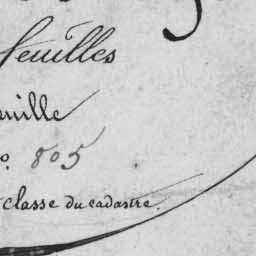 feuilles
euille
º. 805
classe du cadastre.